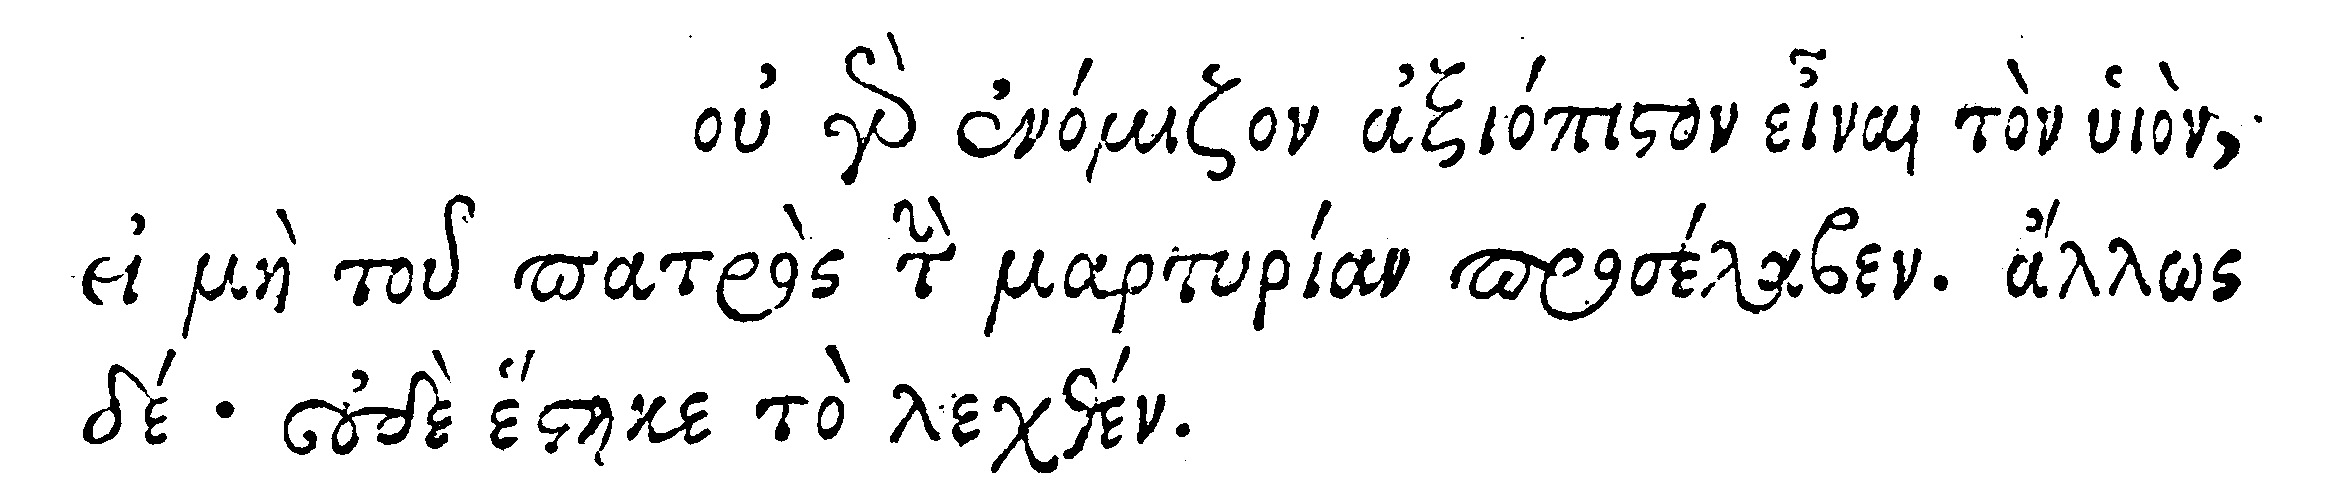 οὐ γὰρ ἐνόμιζον ἀξιόπιστον εἶναι τὸν ὑιὸν,
εἰ μὴ τοῦ πατρὸς τὴν μαρτυρίαν προσέλαβεν. ἄλλως
δέ · οὐδὲ ἕστηκε τὸ λεχθέν.